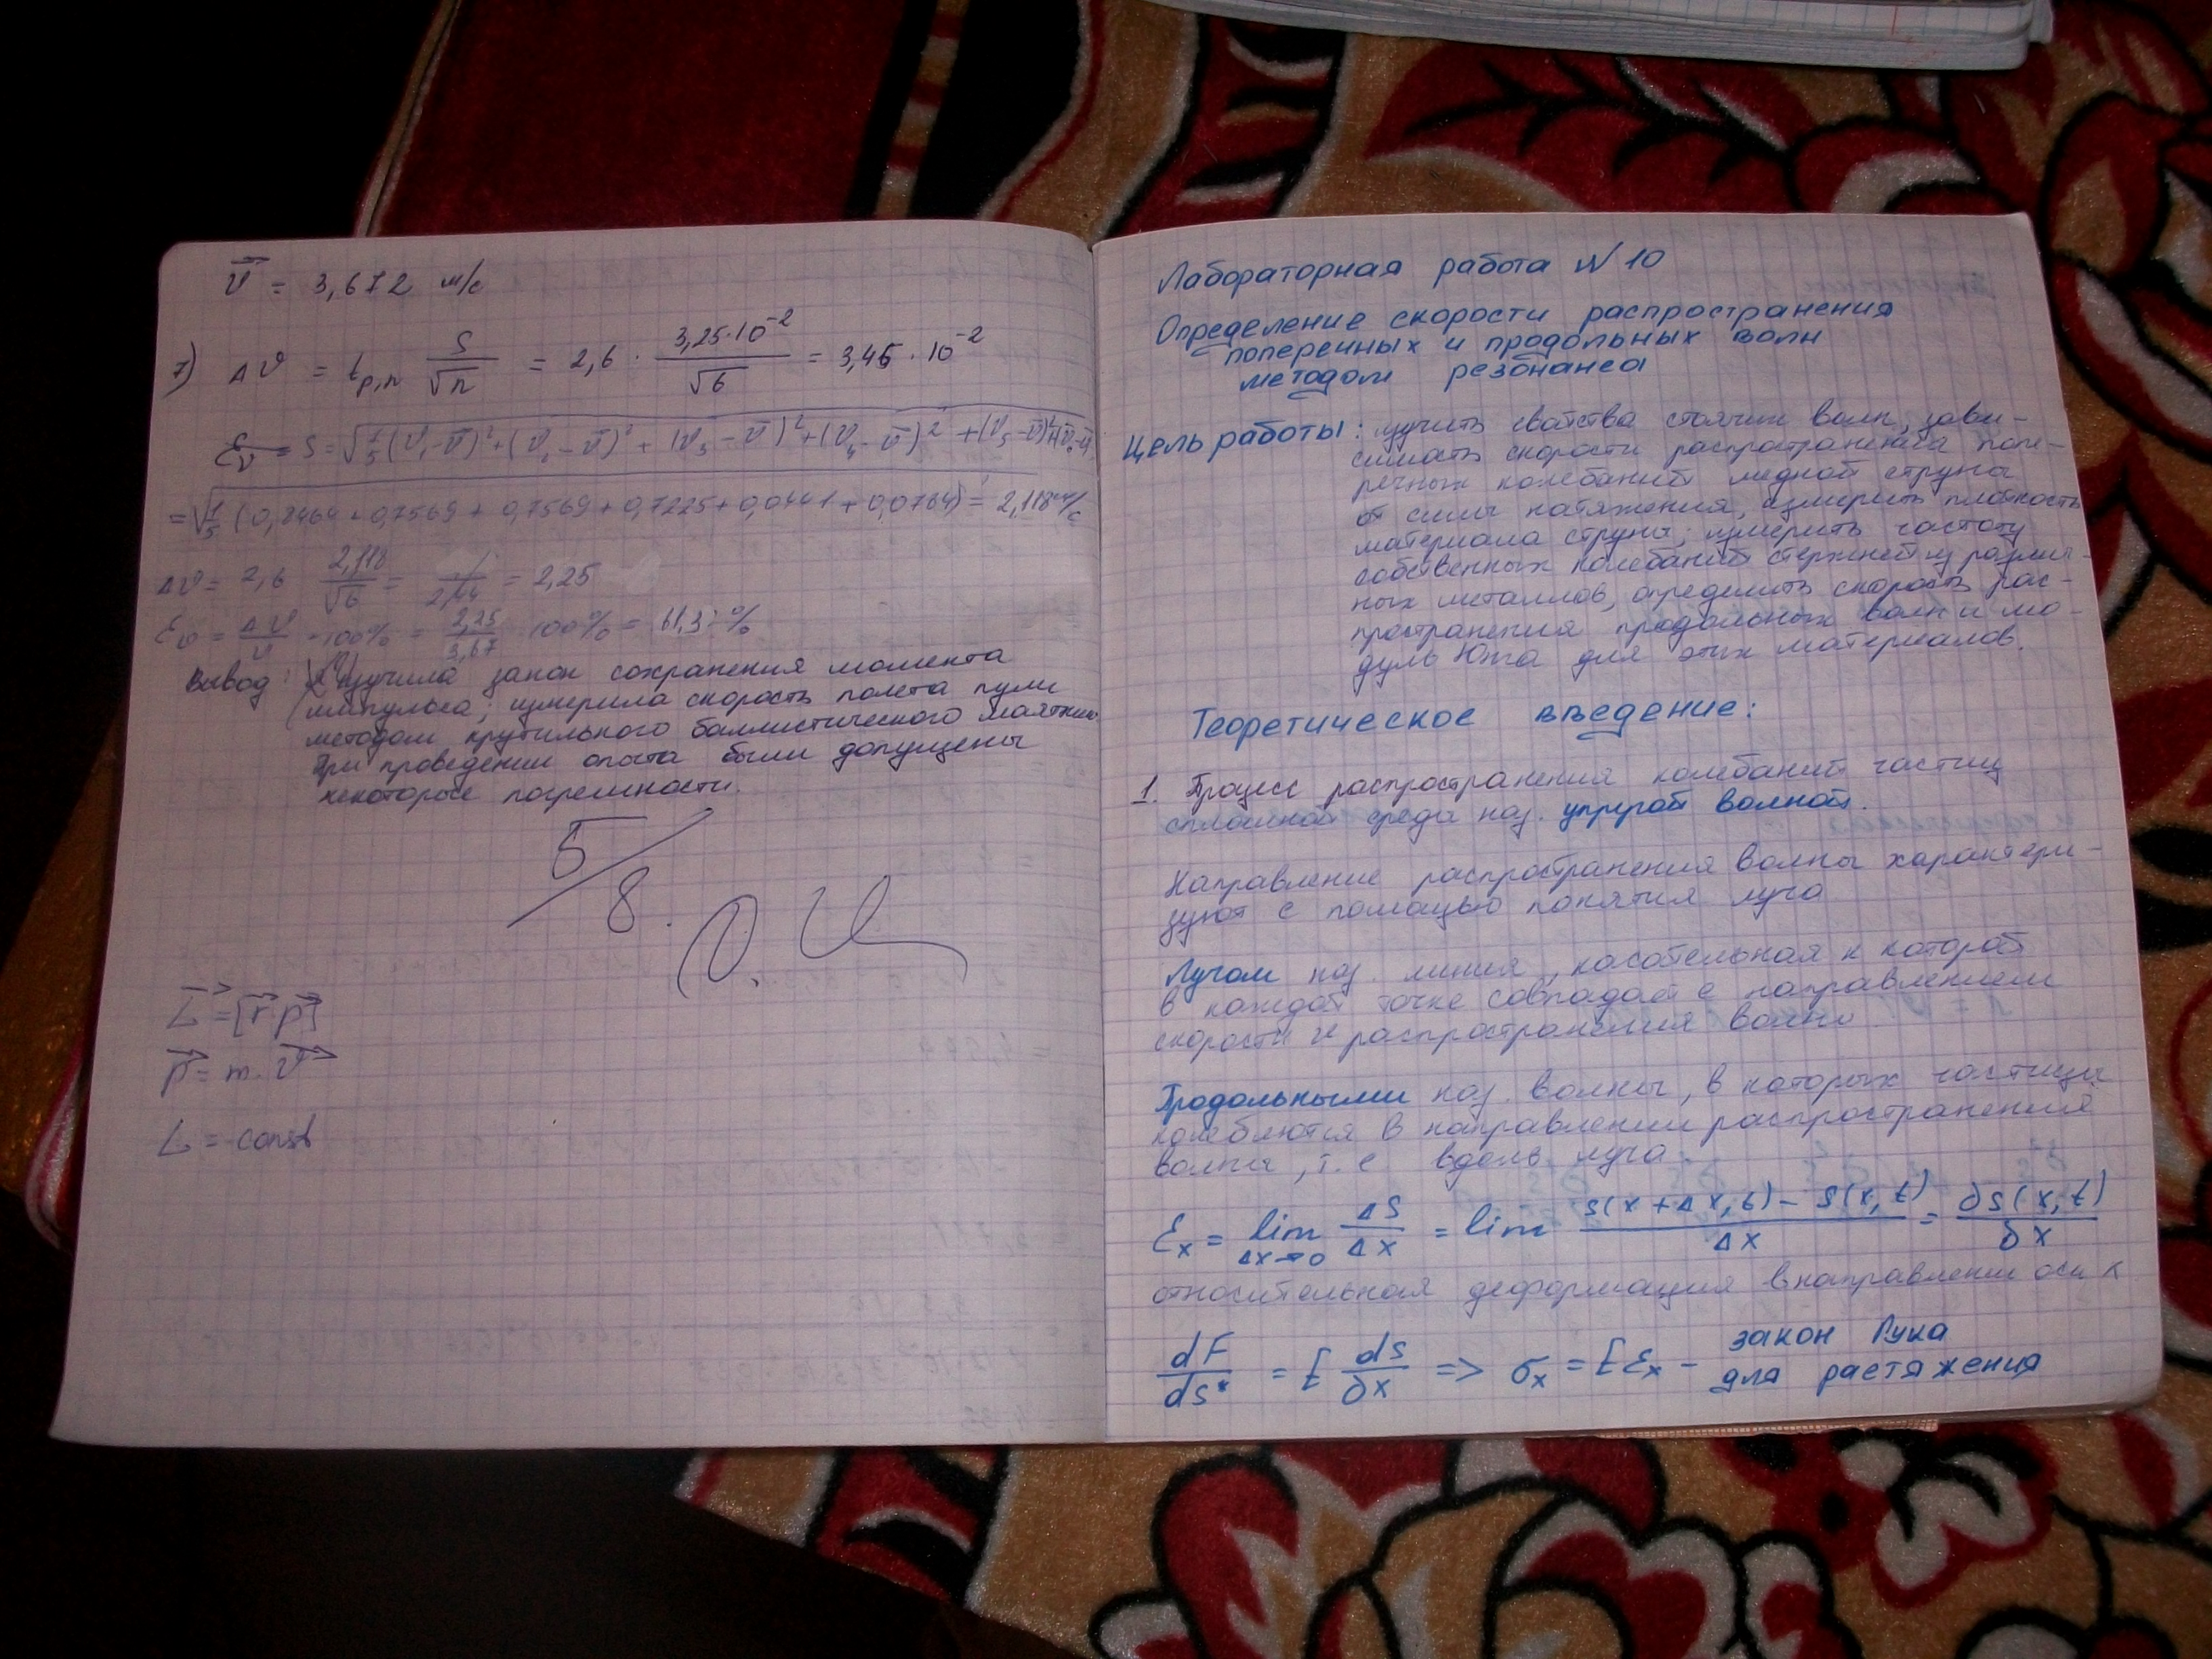 v̄ = 3,672 м/с
7) Δv = t p,n S/√n = 2,6 · 3,25·10⁻²/√6 = 3,45 · 10⁻²
S = √1/5 (v₁-v̄)²+(v₂-v̄)²+(v₃-v̄)²+(v₄-v̄)²+(v₅-v̄)²
= √1/5 (0,8464+0,7569+0,7569+0,7225+0,0441+0,0784) = 2,118 м/с
Δv = 2,6 2,118/√6 = = 2,25
Ɛv = Δv/v · 100% = 2,25/3,67 100% = 61,3 %
Вывод: Изучила закон сохранения момента
импульса; измерила скорость полета пули
методом крутильного баллистического маятника
При проведении опыта были допущены
некоторые погрешности.
5/8.
L⃗ = [r⃗ p⃗]
p⃗ = m · v⃗
L = const
Лабораторная работа №10
Определение скорости распространения
поперечных и продольных волн
методом резонанса
Цель работы: изучить свойства стоячих волн, зави-
симость скорости распространения попе-
речных колебаний медной струны
от силы натяжения, измерить плотность
материала струны; измерить частоту
собственных колебаний стержней из различ-
ных металлов, определить скорость рас-
пространения продольных волн и мо-
дуль Юнга для этих материалов.
Теоретическое введение:
1. Процесс распространения колебаний частиц
сплошной среды наз. упругой волной.
Направление распространения волны характери-
зуют с помощью понятия луча
Лучом наз. линия, касательная к которой
в каждой точке совпадает с направлением
скорости и распространения волны
Продольными наз. волны, в которых частицы
колеблются в направлении распространения
волны, т.е вдоль луча.
Ɛx = lim Δx→0 ΔS/Δx = lim S(x+Δx,t) - S(x,t)/Δx = ∂S(x,t)/∂x
относительная деформация в направлении оси x
dF/ds* = E ds/∂x => σx = EƐx - закон Гука
для растяжения